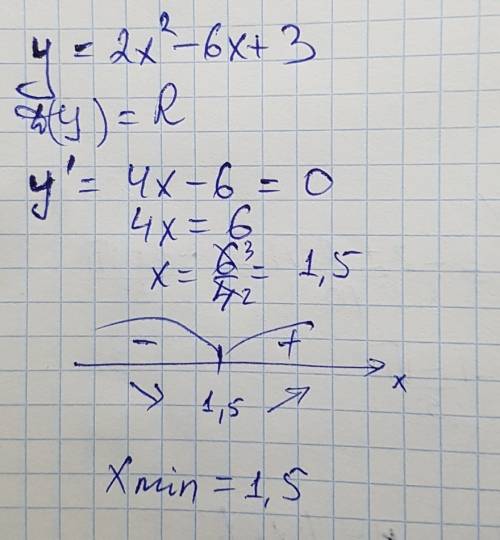 y = 2x² - 6x + 3
D(y) = R
y' = 4x - 6 = 0
4x = 6
x = 6/4 3/2 = 1,5
- +
1,5 x
xmin = 1,5